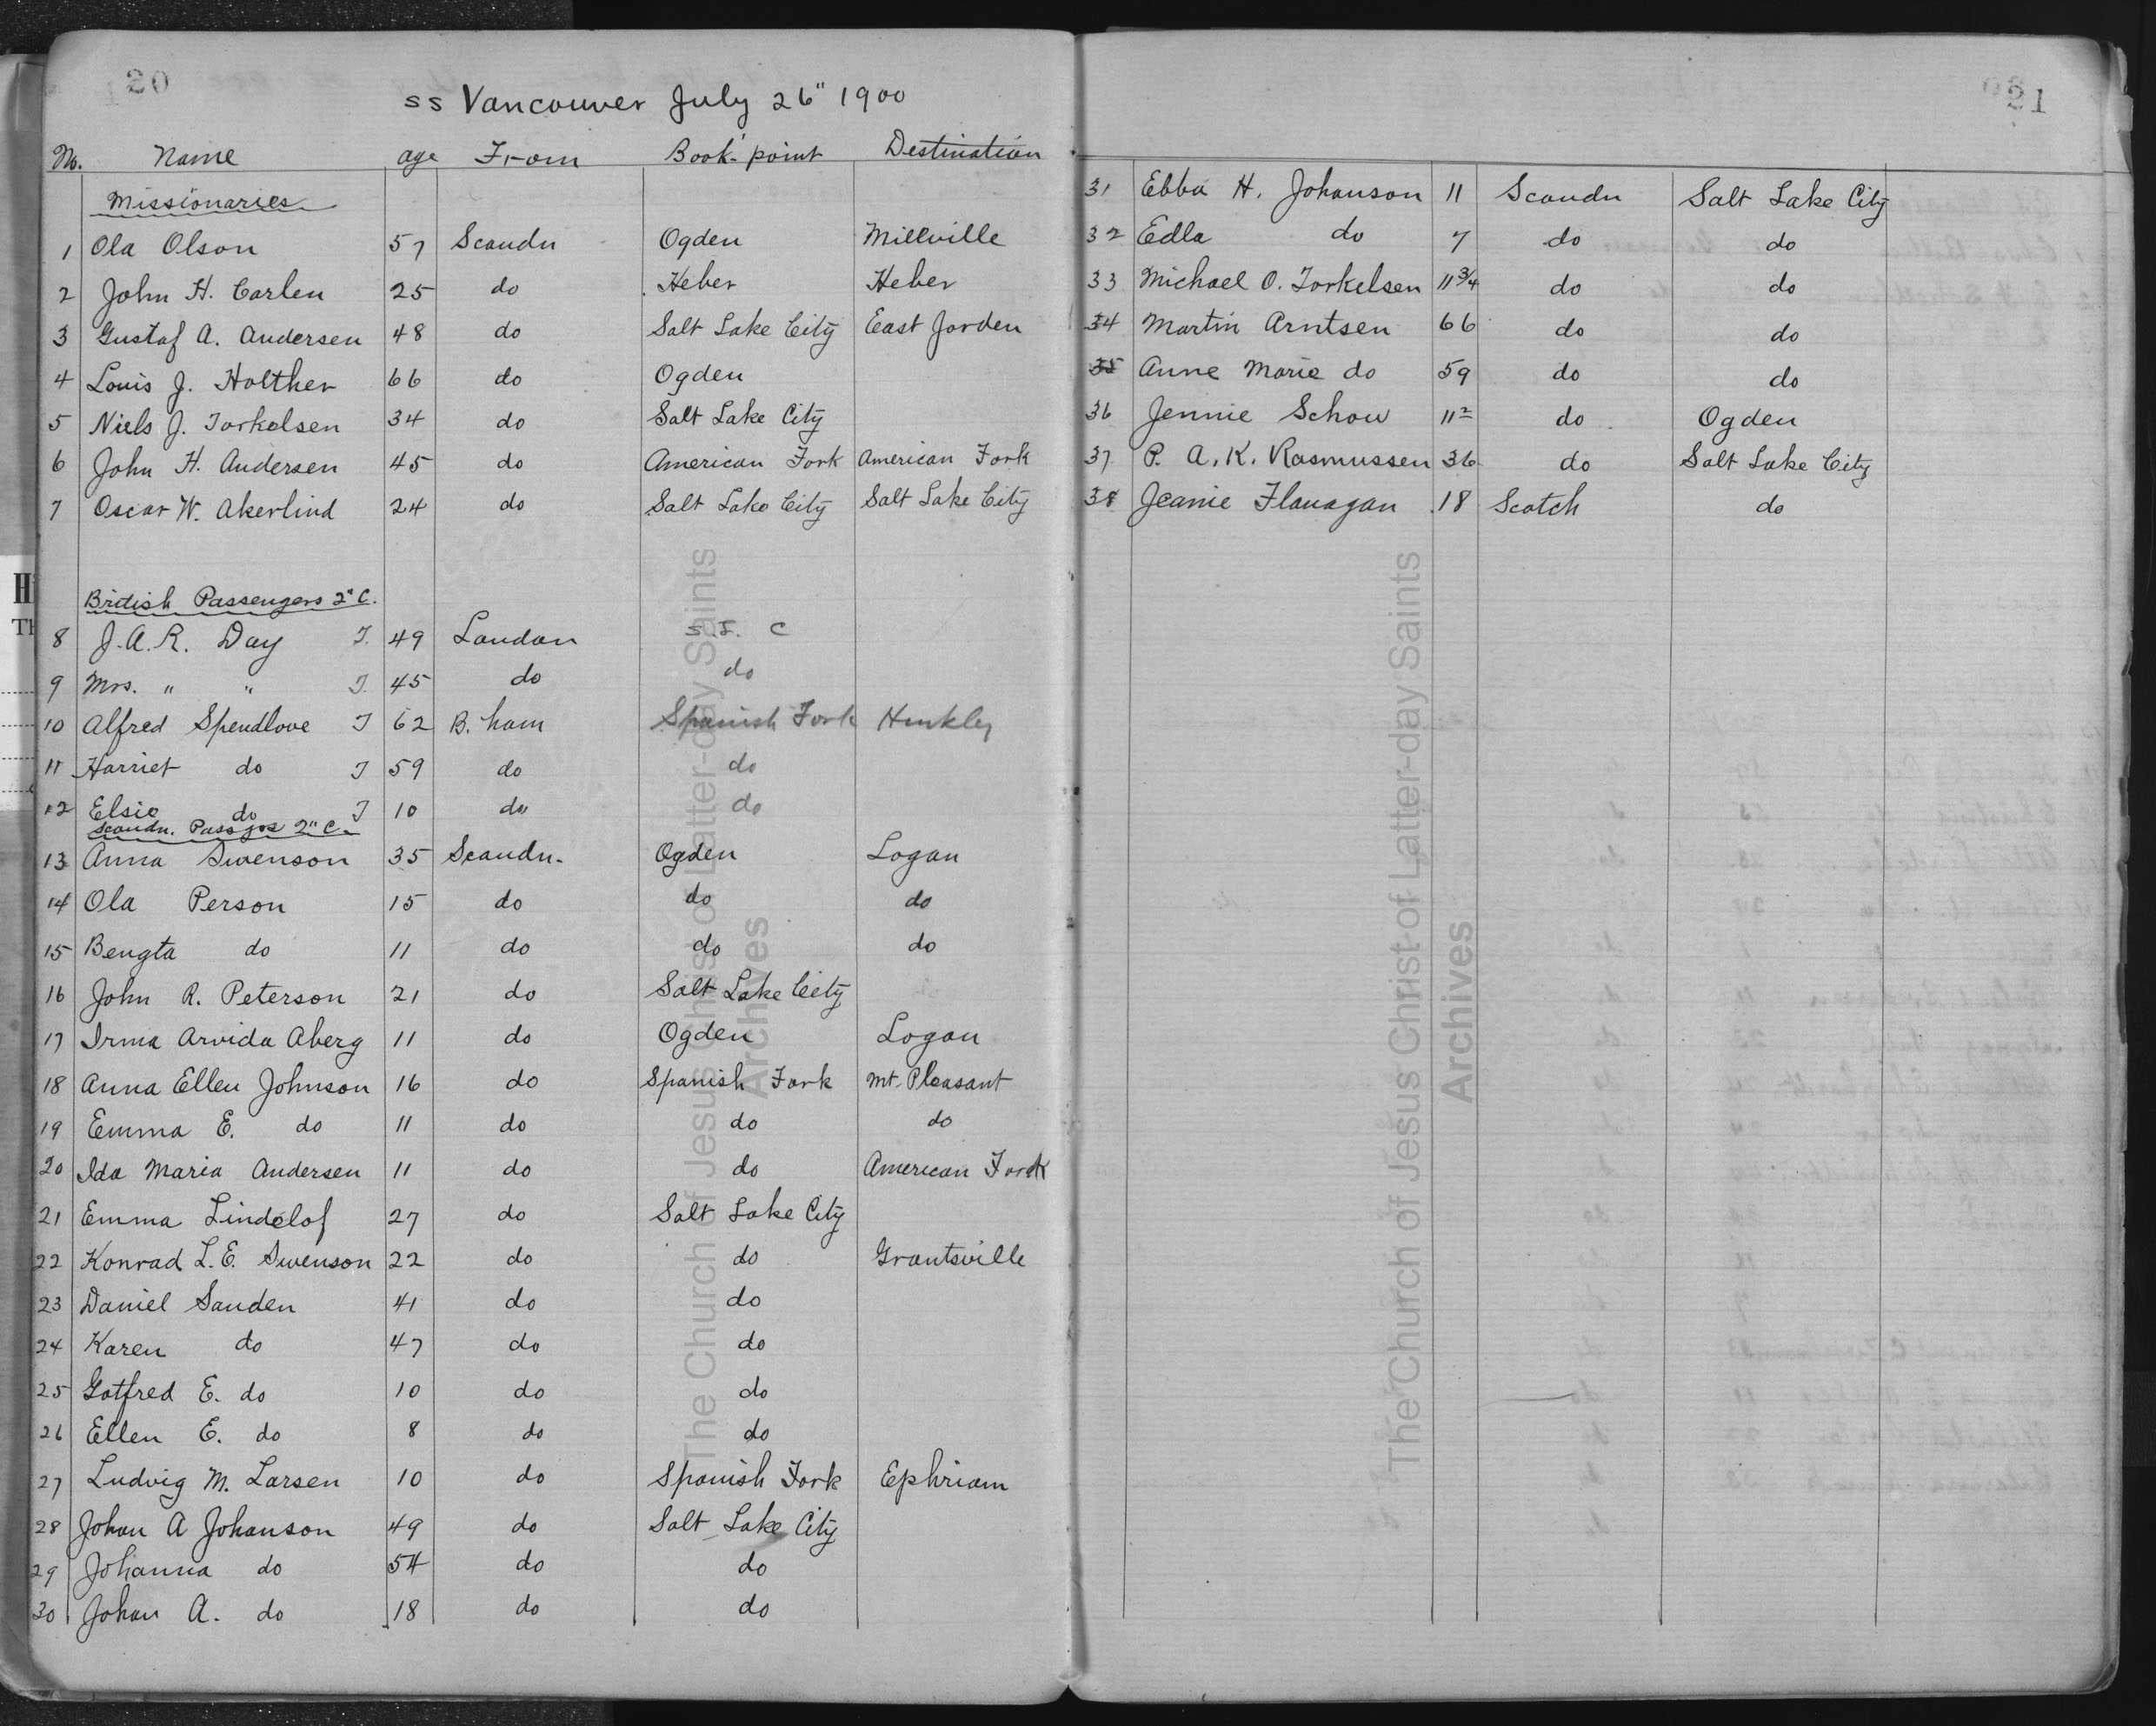 20
ss Vancouver July 26" 1900
No. Name age From Book point Destination
Missionaries
1 Ola Olson 57 Scandn Ogden Millville
2 John H. Carlen 25 do Heber Heber
3 Gustaf A. Andersen 48 do Salt Lake City East Jorden
4 Louis J. Holther 66 do Ogden
5 Niels J. Torkelsen 34 do Salt Lake City
6 John H. Andersen 45 do American Fork American Fork
7 Oscar W. Akerlind 24 do Salt Lake City Salt Lake City
British Passengers 2" C.
8 J.A.R. Day T. 49 London S. L. C
9 Mrs. " " T. 45 do do
10 Alfred Spendlove T 62 B. ham Spanish Fork Hinkley
11 Harriet do T 59 do do
12 Elsie do T 10 do do
Scandn. Passgrs 2" C.
13 Anna Swenson 35 Scandn. Ogden Logan
14 Ola Person 15 do do do
15 Bengta do 11 do do do
16 John R. Peterson 21 do Salt Lake City
17 Irma Arvida Aberg 11 do Ogden Logan
18 Anna Ellen Johnson 16 do Spanish Fork Mt. Pleasant
19 Emma E. do 11 do do do
20 Ida Maria Andersen 11 do do American Fork
21 Emma Lindelof 27 do Salt Lake City
22 Konrad L.E. Swenson 22 do do Grantsville
23 Daniel Sanden 41 do do
24 Karen do 47 do do
25 Gotfred E. do 10 do do
26 Ellen E. do 8 do do
27 Ludvig M. Larsen 10 do Spanish Fork Ephriam
28 Johan A Johanson 49 do Salt Lake City
29 Johanna do 54 do do
30 Johan A. do 18 do do
21
31 Ebba H. Johanson 11 Scandn Salt Lake City
32 Edla do 7 do do
33 Michael O. Torkelsen 11 3/4 do do
34 Martin Arntsen 66 do do
35 Anne Marie do 59 do do
36 Jennie Schow 11 2 do Ogden
37 P. A. K. Rasmussen 36 do Salt Lake City
38 Jeanie Flanagan 18 Scotch do
The Church of Jesus Christ of Latter-day Saints
Archives
The Church of Jesus Christ of Latter-day Saints
Archives